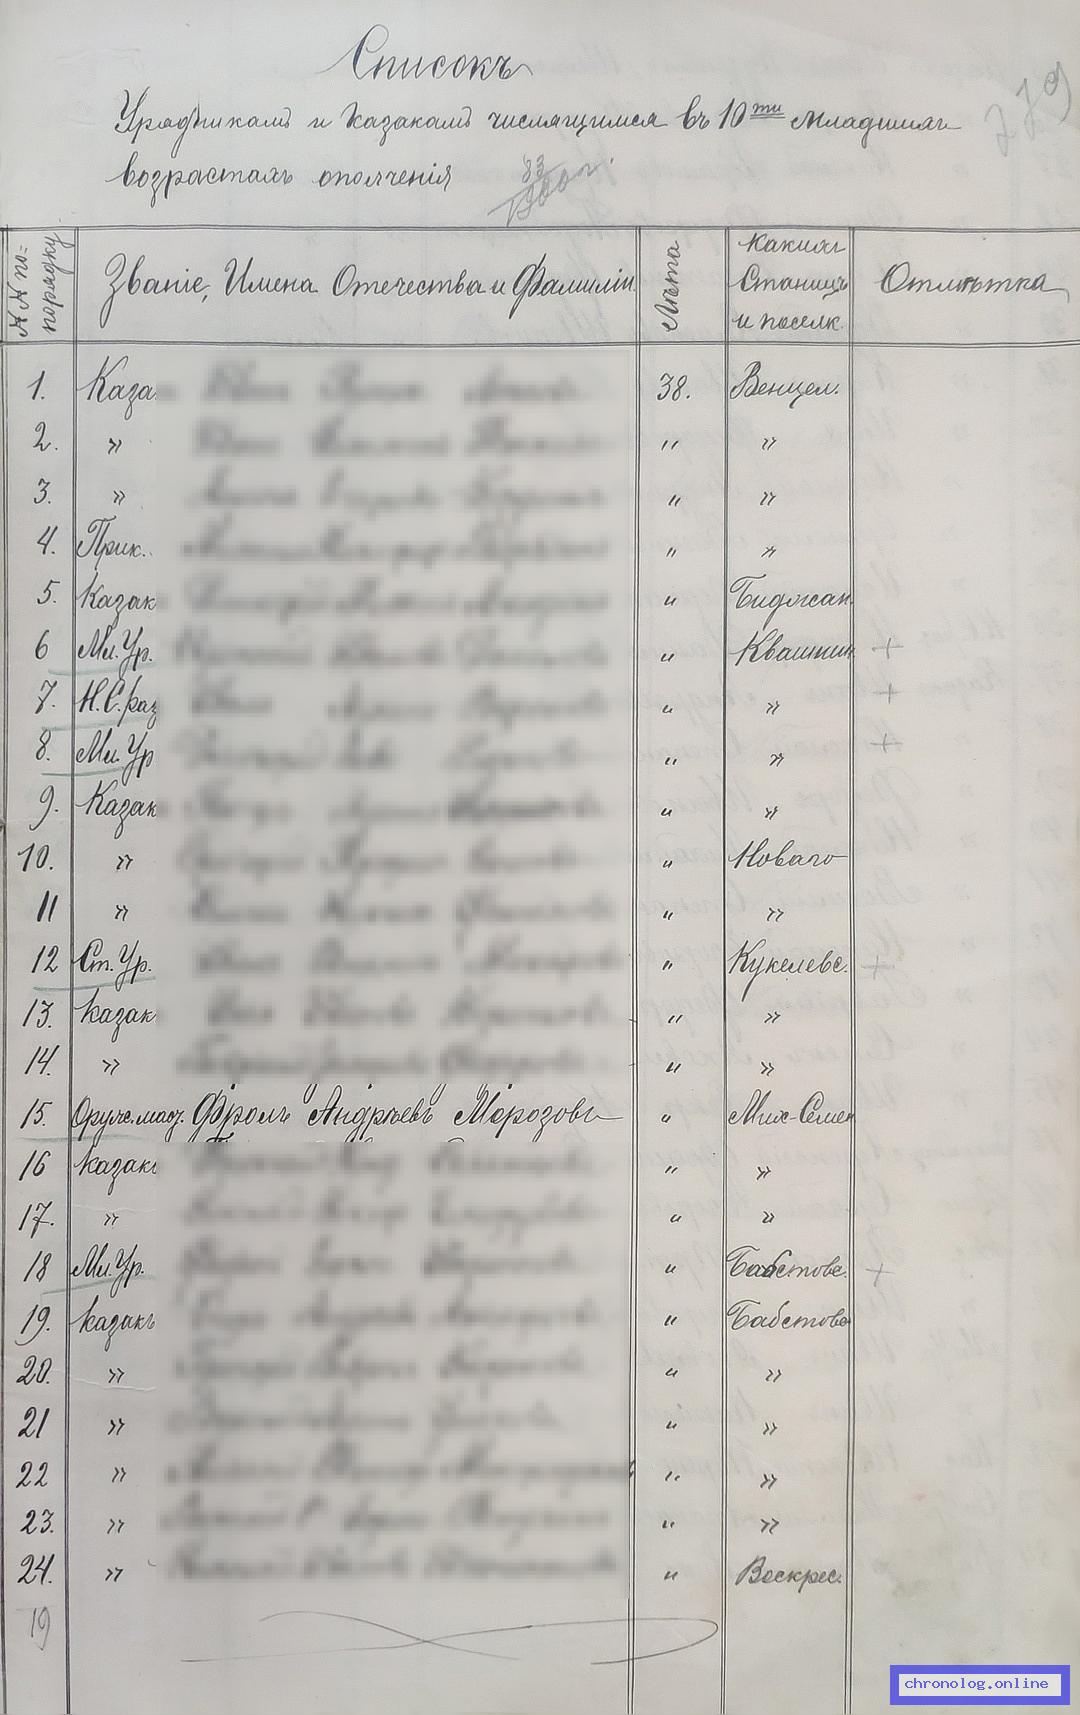 Списокъ
279
Урядникамъ и Казакамъ числящимся въ 10ти младшихъ
возрастахъ ополченія 83/1900 г.
№№ по-порядку Званіе, Имена Отечества и Фамиліи Лѣта Какихъ Станицъ и поселк. Отмѣтка
1. Каза 38. Венцел.
2. » " »
3. » " »
4. Прик. " »
5. Казак " Биджан.
6 Мл. Ур. " Квашнин +
7. Н.С. раз " » +
8. Мл. Ур " » +
9. Казак " »
10. » " Новаго
11 » " »
12 Ст. Ур. " Кукелевс. +
13. казак " »
14. » " »
15. Оруж.маст. Фролъ Андрѣевъ Морозовъ " Мих-Семен
16 казакъ " »
17. » " »
18 Мл. Ур. " Бабстовс. +
19. казакъ " Бабстово
20. » " »
21 » " »
22 » " »
23. » " »
24. » " Воскрес.
19
chronolog.online